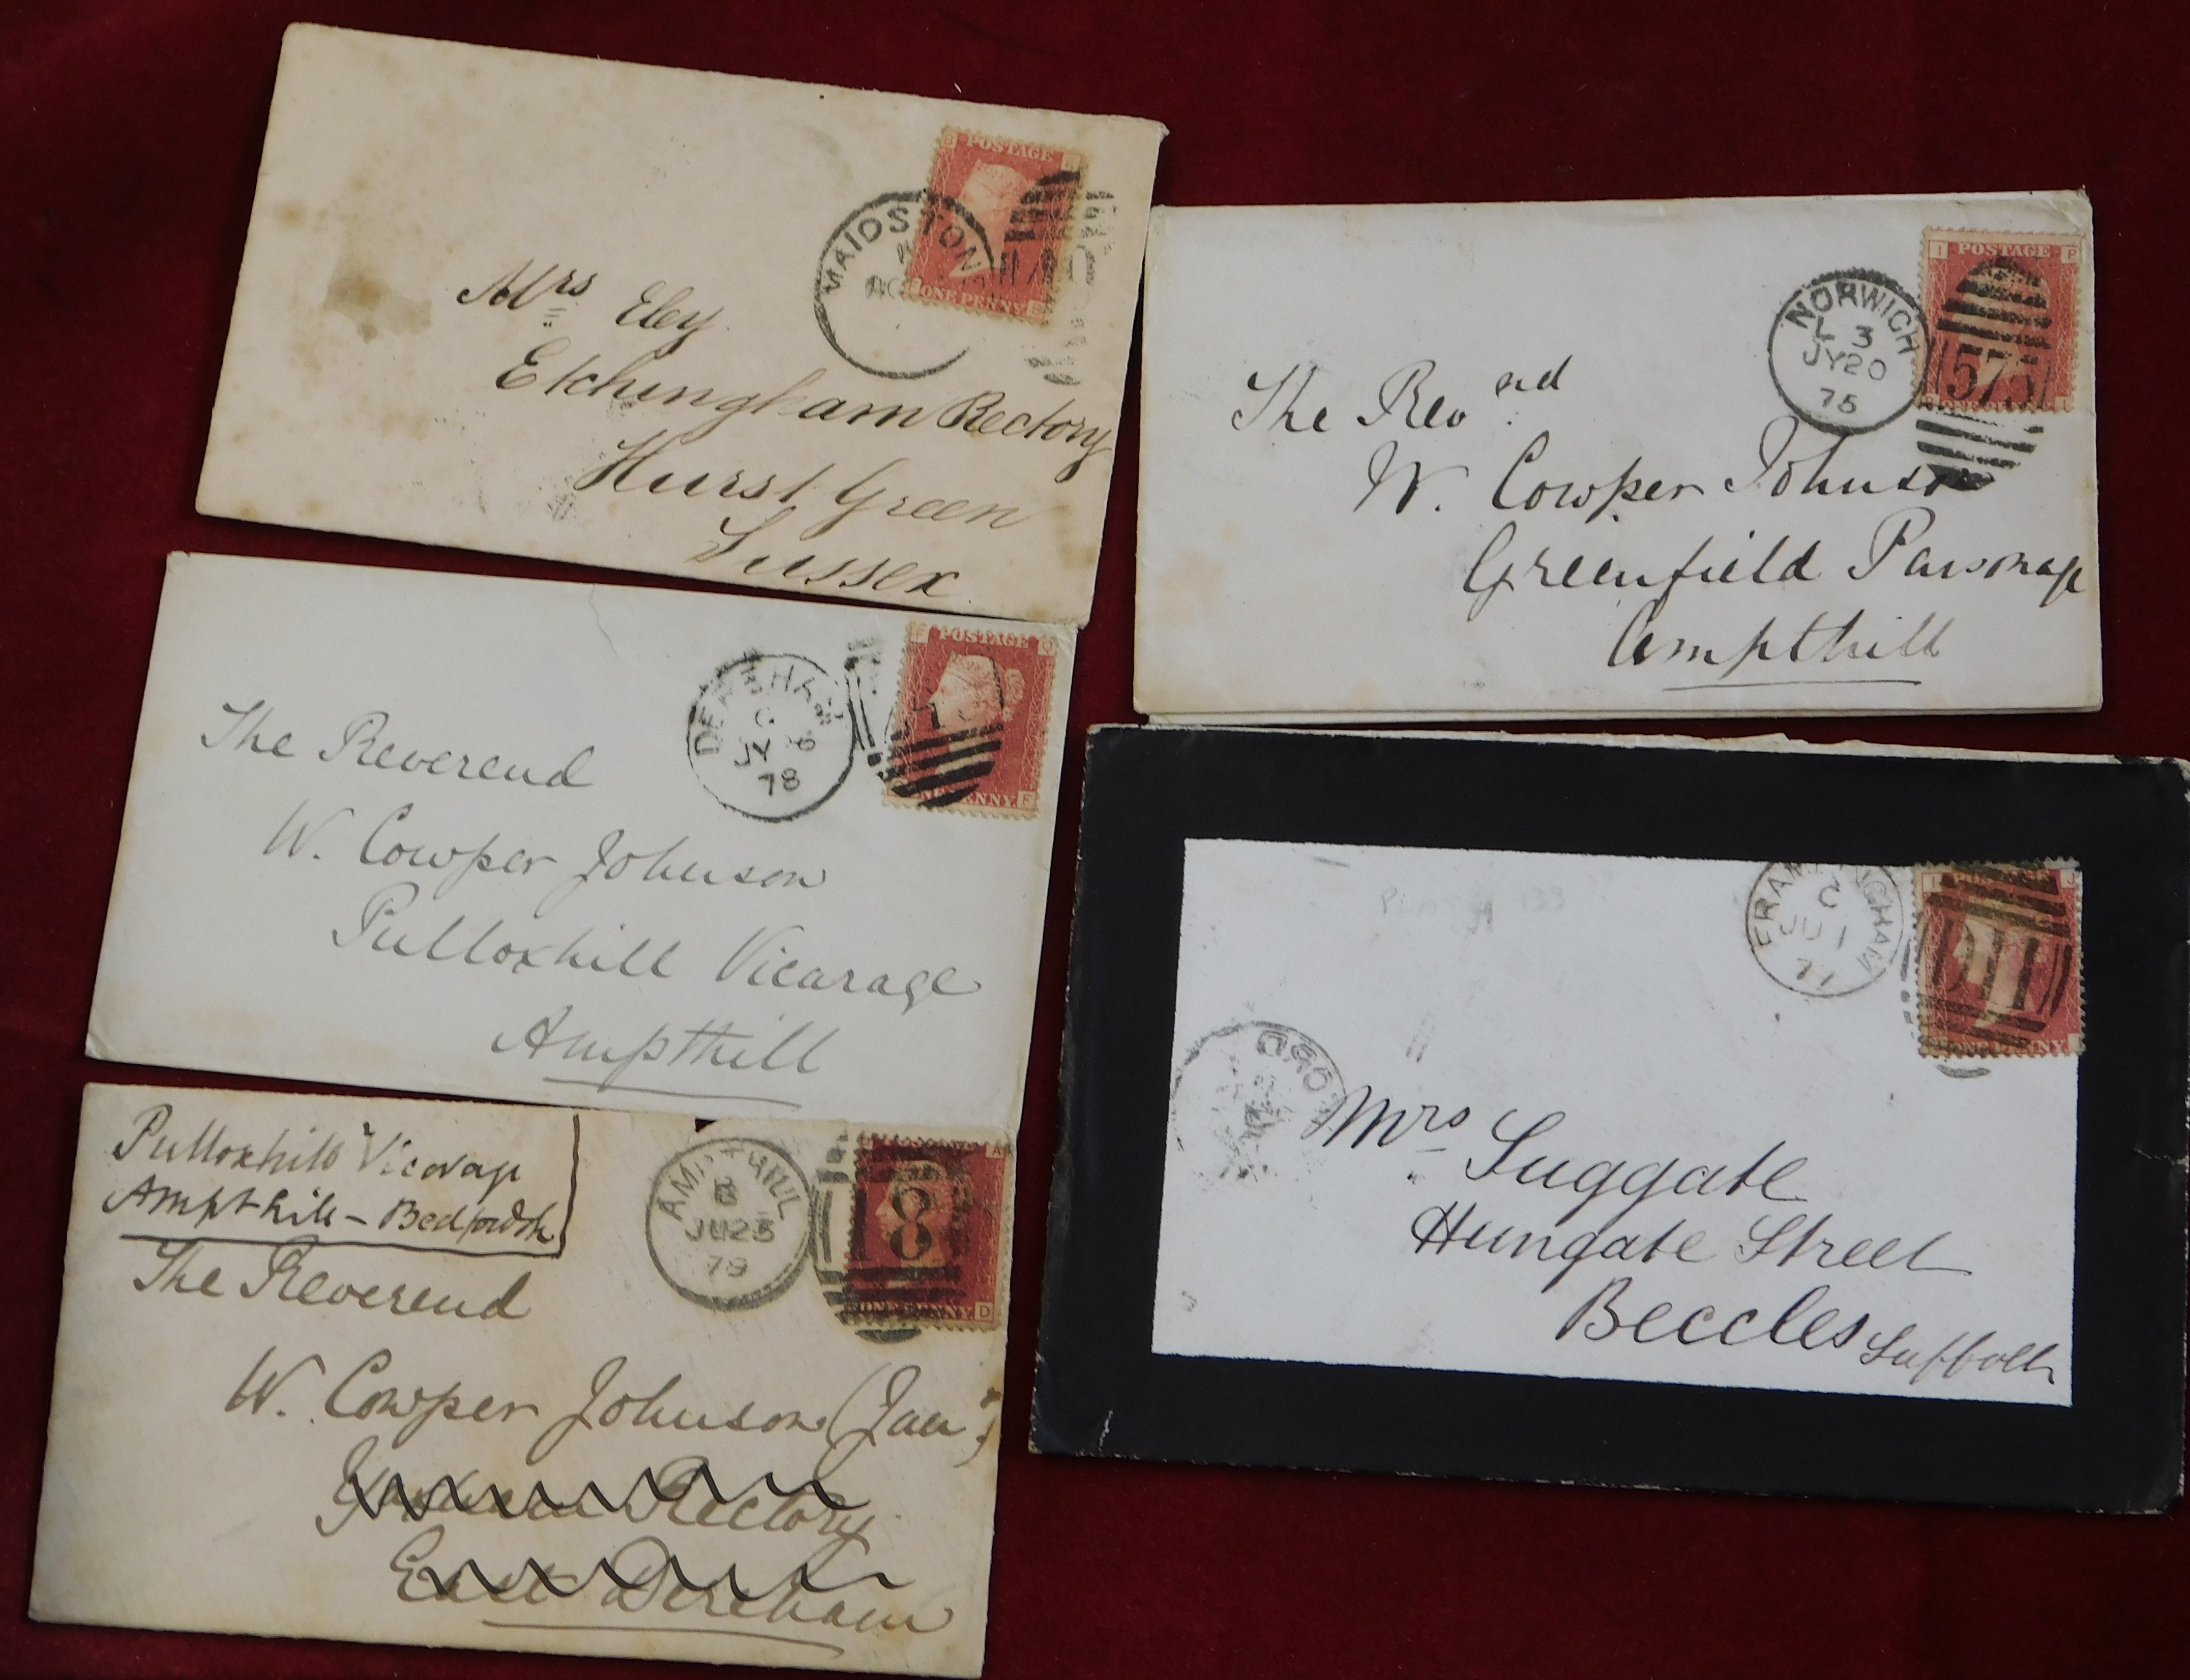 POSTAGE
ONE PENNY
MAIDSTON
Mrs Eley
Etchingham Rectory
Hurst Green
Sussex
I POSTAGE P
575
NORWICH
L 3
JY 20
75
The Revend
W. Cowper Johnson
Greenfield Parsonage
Ampthill
F POSTAGE Q
PENNY F
JY
78
The Reverend
W. Cowper Johnson
Pulloxhill Vicarage
Ampthill
PLATE 133
C
JU 1
77
I POSTAGE J
Mrs Suggate
Hungate Street
Beccles Suffolk
Pulloxhill Vicarage
Ampthill - Bedfordsh
AMPTHILL
B
JU 25
79
A
8
ONE PENNY D
The Reverend
W. Cowper Johnson (Junr)
Rectory
East Dereham